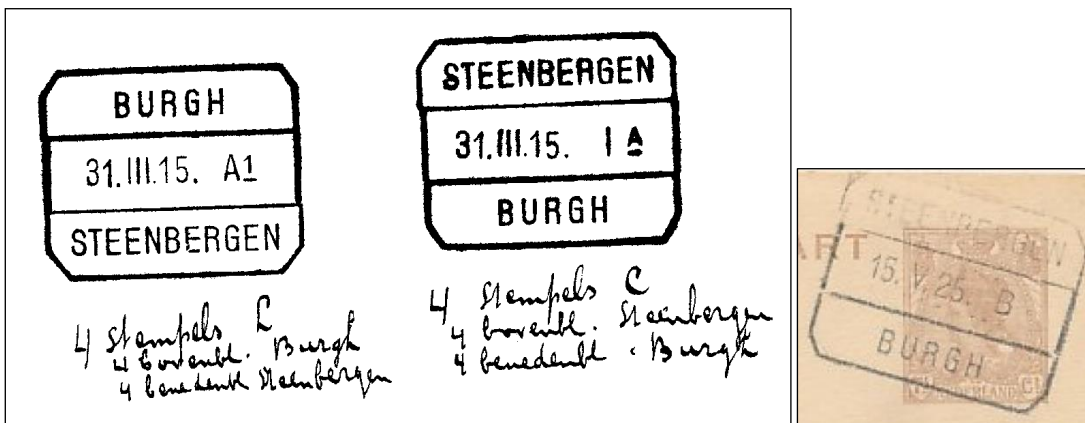 BURGH
31.III.15. A1
STEENBERGEN
4 stempels L
4 bovenbl. Burgh
4 benedenbl Steenbergen
STEENBERGEN
31.III.15. I A
BURGH
4 stempels C
4 bovenbl. Steenbergen
4 benedenbl. Burgh
ART
STEENBERGEN
15.V.25. B
BURGH